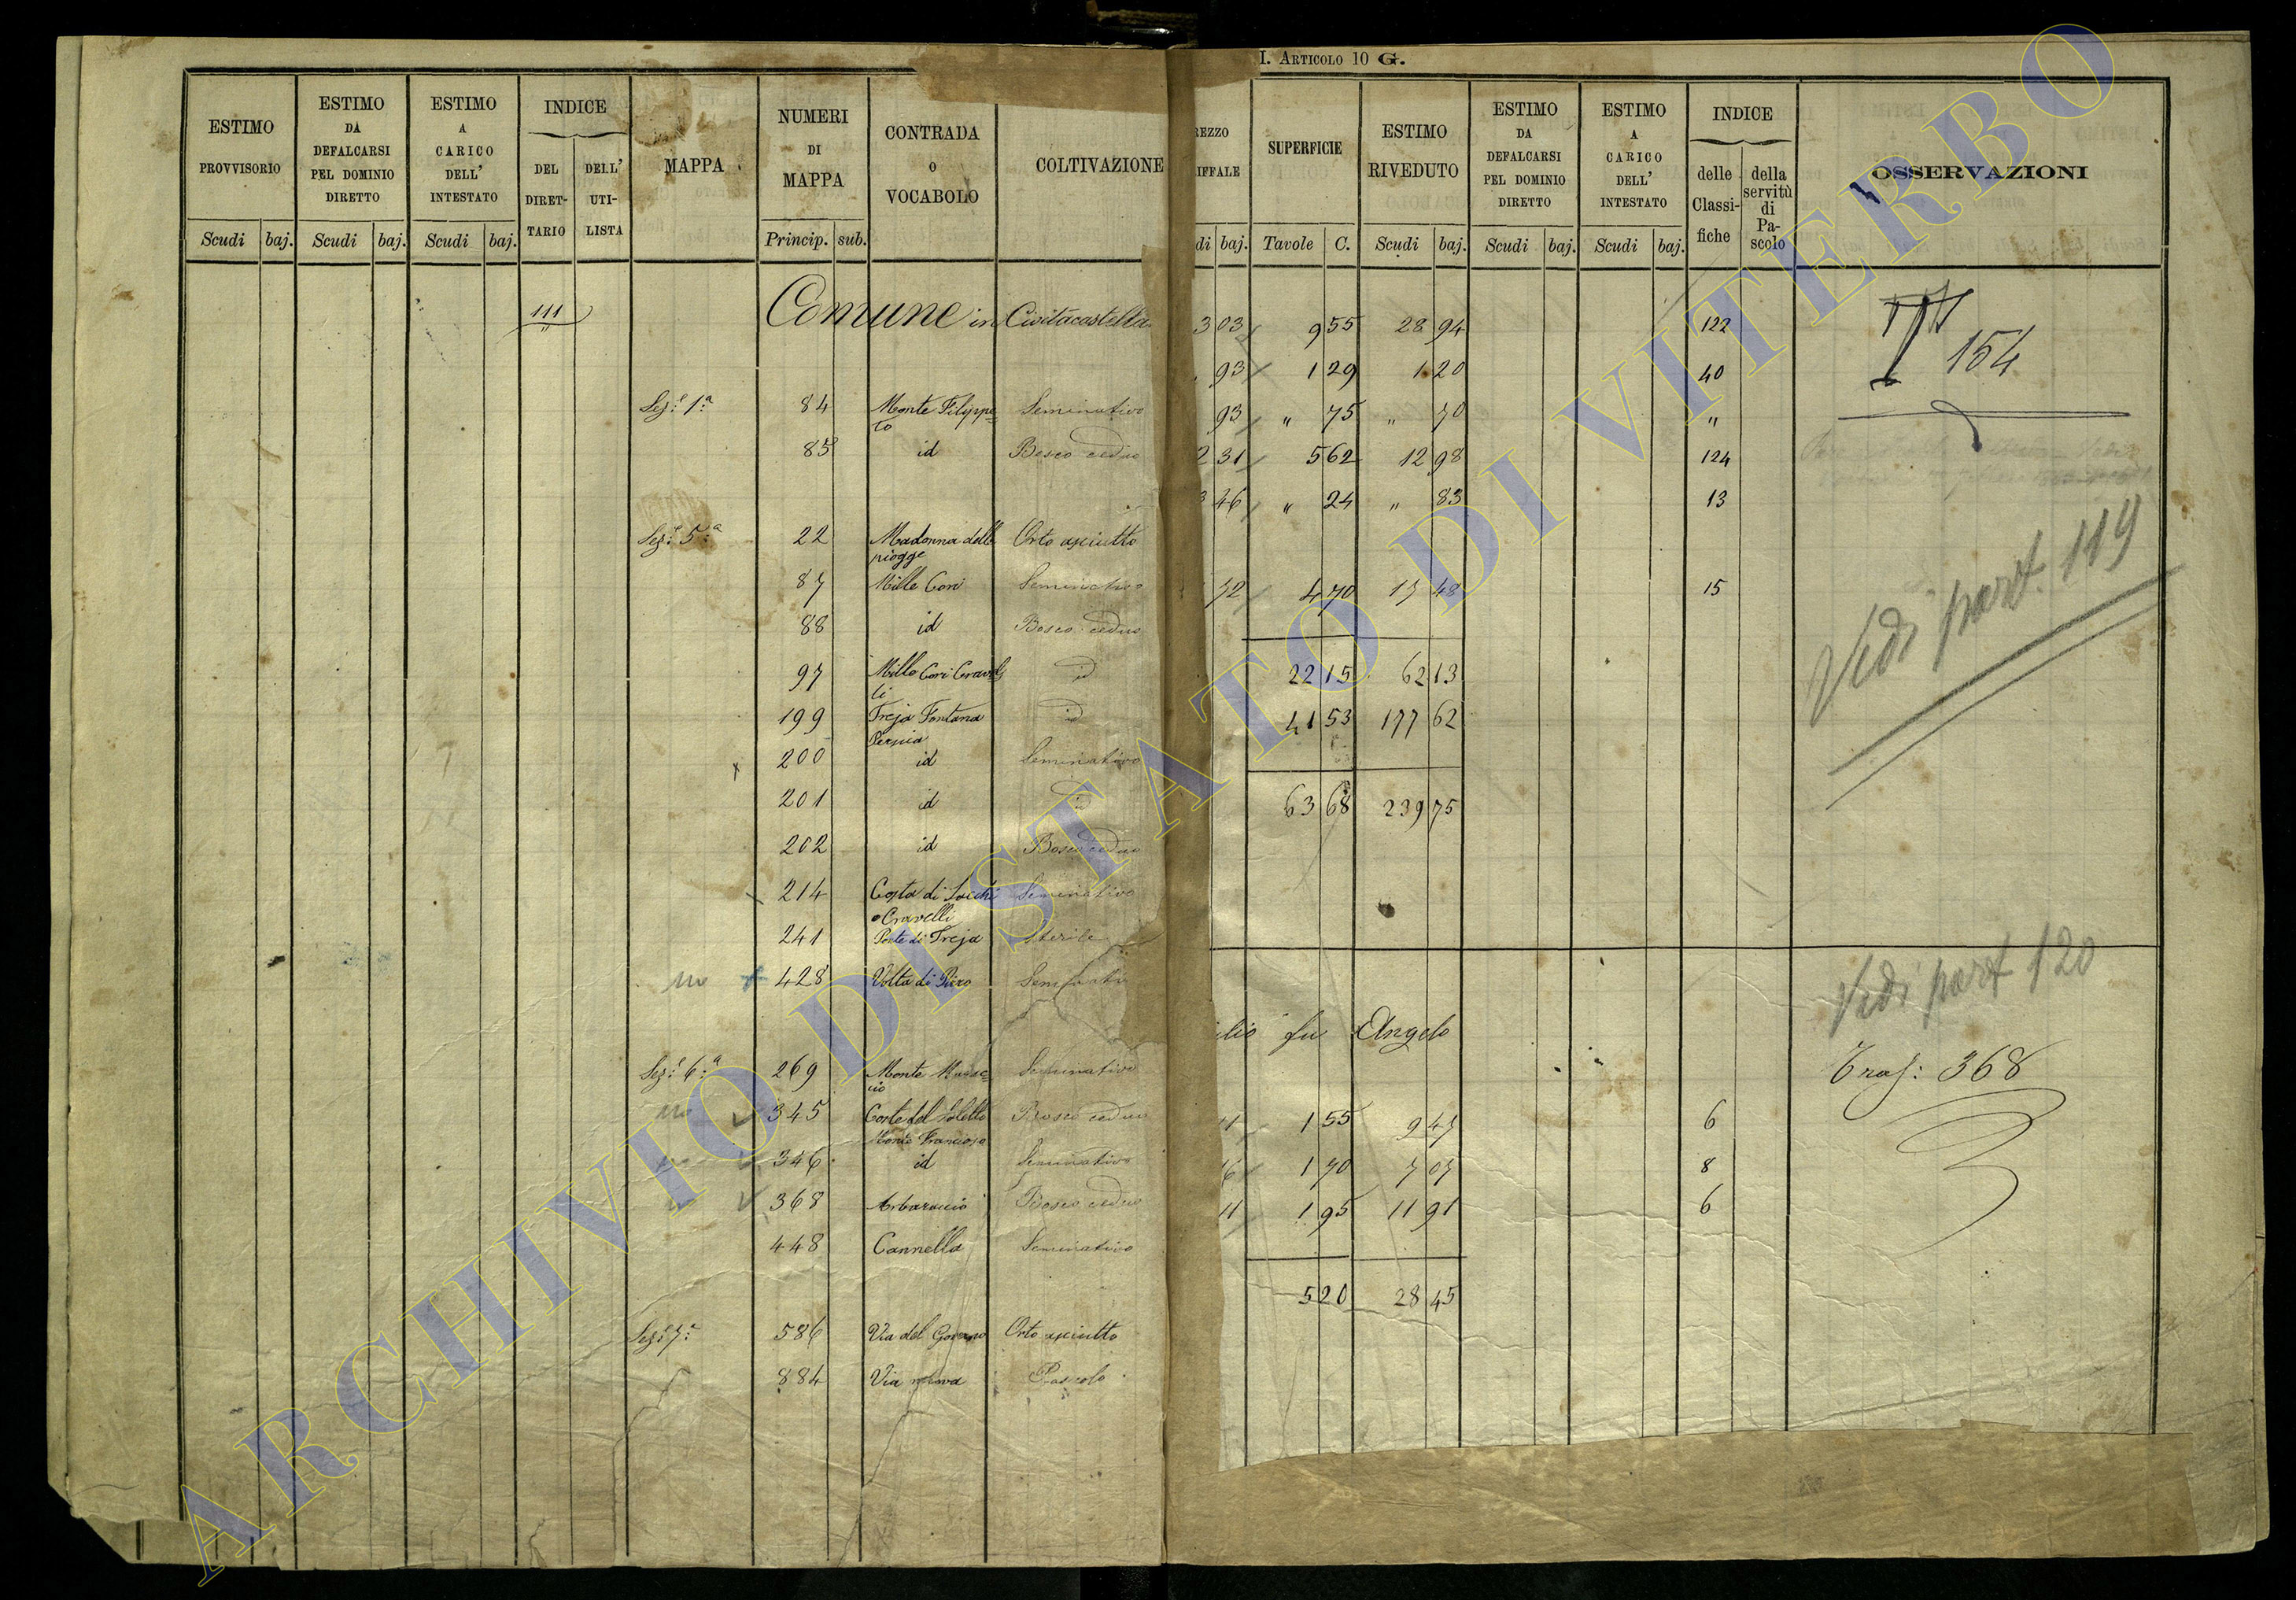 ESTIMO PROVVISORIO
ESTIMO DA DEFALCARSI PEL DOMINIO DIRETTO
ESTIMO A CARICO DELL' INTESTATO
INDICE
DEL DIRET-TARIO
DELL' UTI-LISTA
MAPPA
NUMERI DI MAPPA
CONTRADA O VOCABOLO
COLTIVAZIONE
Scudi baj. Scudi baj. Scudi baj. Princip. sub.
111 Comune in Civitacastella
Sez.e 1.a 84 Monte Filippe=to Seminativo
85 id Bosco ceduo
Sez.e 5.a 22 Madonna delle piogge Orto asciutto
87 Mille Cori Seminativo
88 id Bosco ceduo
97 Mille Cori id
199 Treja Fontana id
200 id Seminativo
201 id id
202 id Bosco ceduo
214 Costa di o Cravelli Seminativo
241 Ponte di Treja Sterile
no 428 Volta di
Sez.e 6.a 269 Monte Seminativo
no 345 Bosco ceduo
346 id Seminativo
368 Bosco ceduo
448 Cannella Seminativo
Sez.e 7.a 586 Via del Governo Orto asciutto
884 Via nuova Pascolo
I. ARTICOLO 10 G.
REZZO
IFFALE
SUPERFICIE
ESTIMO RIVEDUTO
ESTIMO DA DEFALCARSI PEL DOMINIO DIRETTO
ESTIMO A CARICO DELL' INTESTATO
INDICE
delle Classi-fiche
della servitù di Pa-scolo
OSSERVAZIONI
di baj. Tavole C. Scudi baj. Scudi baj. Scudi baj.
3 03 9 55 28 94 122
154
93 1 29 1 20 40
93 " 75 " 70 "
2 31 5 62 12 98 124
3 46 " 24 " 83 13
72 4 70 17 48 15
Vedi part. 119
22 15 62 13
41 53 177 62
63 68 239 75
Vedi part 120
lio fu Angelo
Traf: 368
11 1 55 9 47 6
16 1 70 7 07 8
11 1 95 11 91 6
5 20 28 45
ARCHIVIO DI STATO DI VITERBO